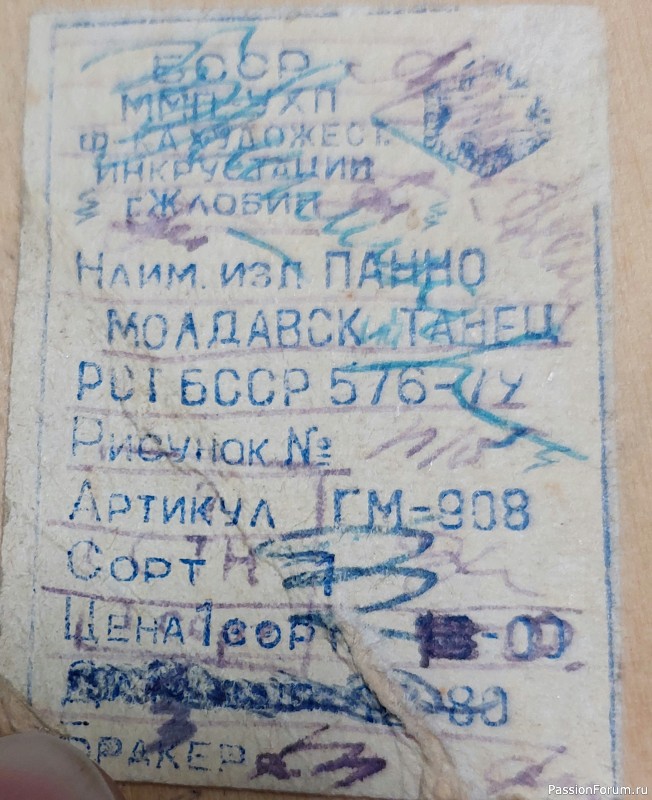 БССР
ММП УХП
Ф-КА ХУДОЖЕСТ.
ИНКРУСТАЦИИ
Г.ЖЛОБИН
НАИМ. ИЗД. ПАННО
МОЛДАВСК. ТАНЕЦ
РСТ БССР 576-79
РИСУНОК №
АРТИКУЛ ГМ-908
СОРТ
ЦЕНА 1 СОРТ -00
-80
БРАКЕР
PassionForum.ru